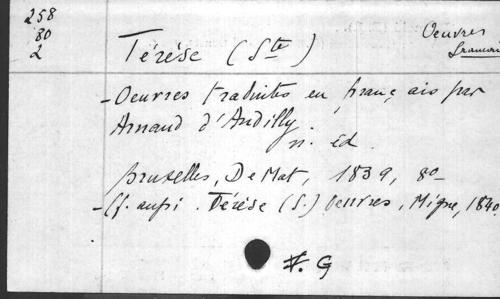 258
80
2
Térése (Ste)
Oeuvres
- Oeuvres traduites en franç ais par
Arnaud d'Andilly.
n. éd.
Bruxelles, De Mat, 1839, 8o
- Cf. aussi. Térése (S.) Oeuvres, Migne, 1840
G